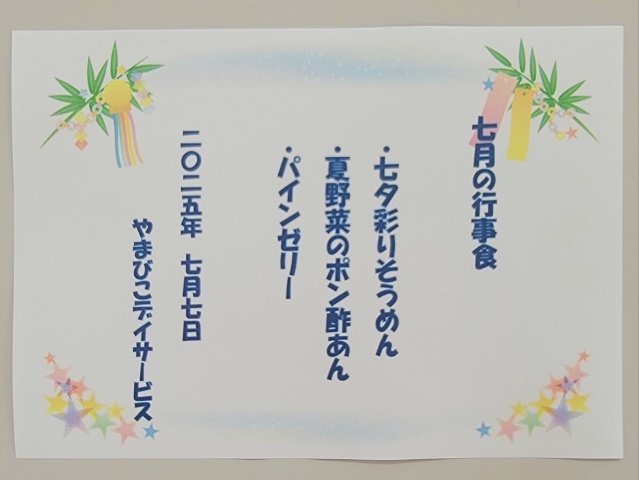 七月の行事食
・七夕彩りそうめん
・夏野菜のポン酢あん
・パインゼリー
二〇二五年 七月七日
やまびこデイサービス